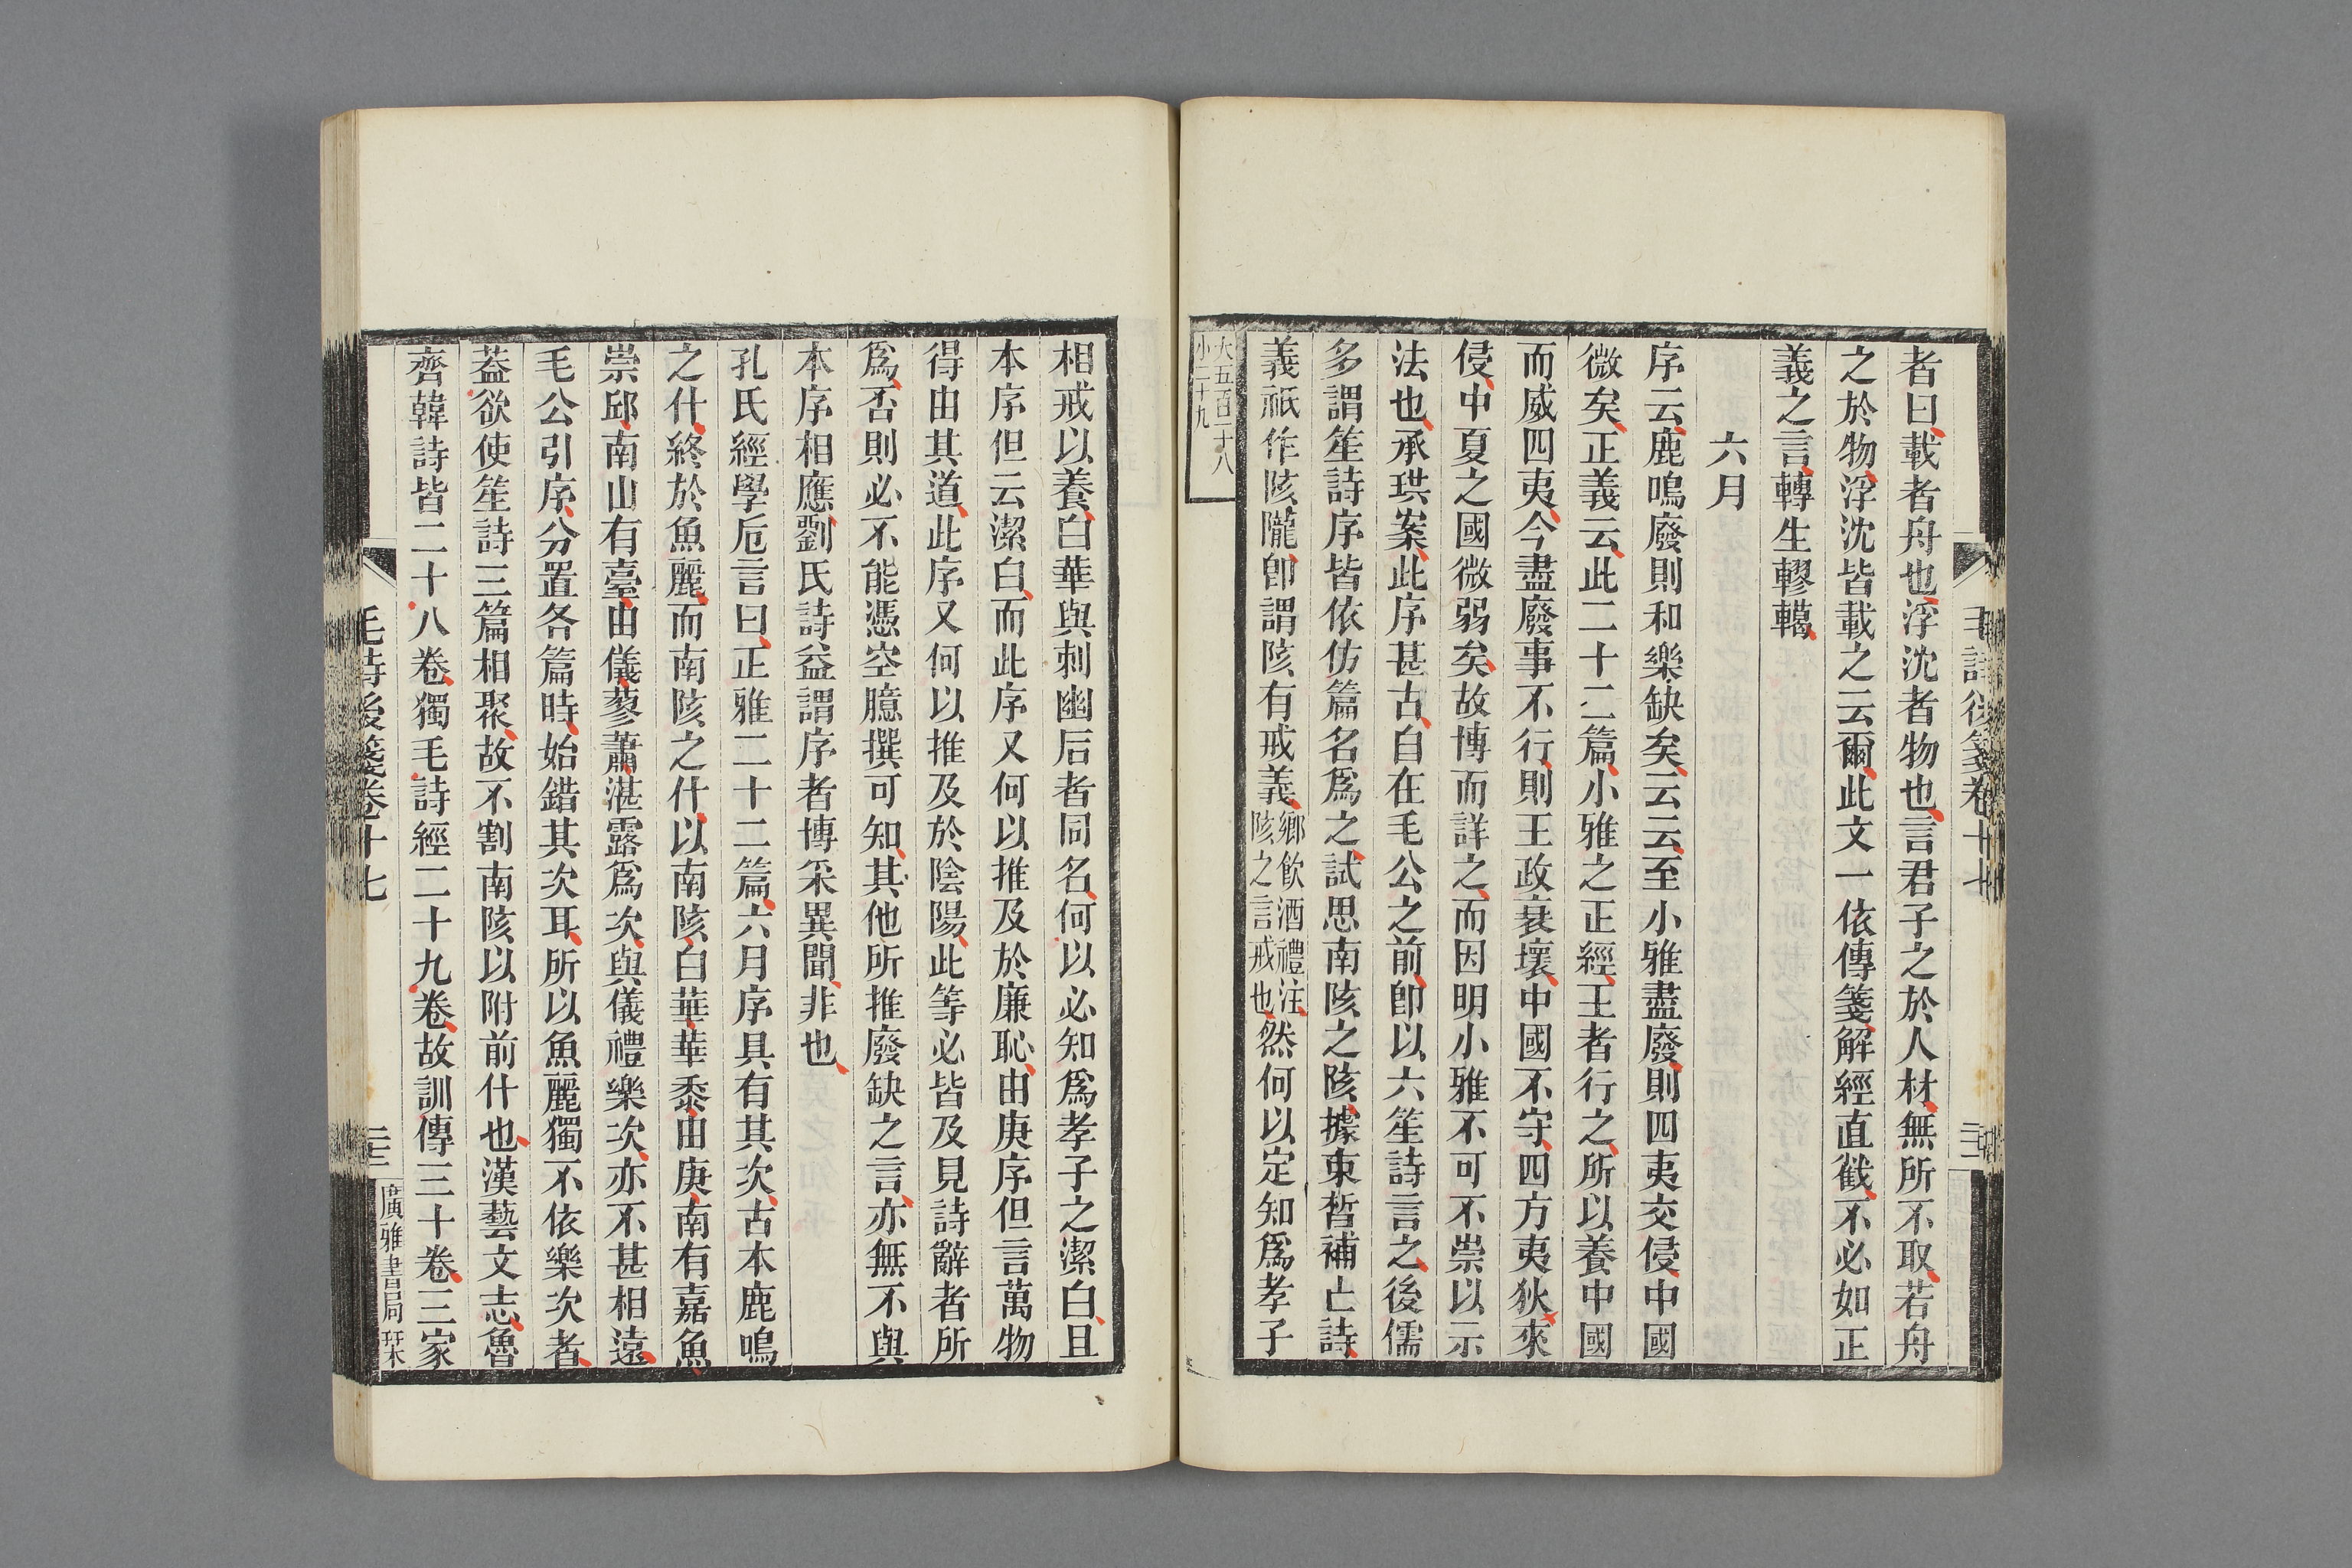 毛詩後箋卷十七
者曰載者舟也浮沈者物也言君子之於人材無所不取若舟
之於物浮沈皆載之云爾此文一依傳箋解經直截不必如正
義之言轉生轇轕
六月
序云鹿鳴廢則和樂缺矣云云至小雅盡廢則四夷交侵中國
微矣正義云此二十二篇小雅之正經王者行之所以養中國
而威四夷今盡廢事不行則王政衰壞中國不守四方夷狄來
侵中夏之國微弱矣故博而詳之而因明小雅不可不崇以示
法也承珙案此序甚古自在毛公之前卽以六笙詩言之後儒
多謂笙詩序皆依仿篇名爲之試思南陔之陔據束晳補亡詩
義祇作陔隴卽謂陔有戒義鄉飲酒禮注
陔之言戒也然何以定知爲孝子
大五百二十八
小二十九
相戒以養白華與刺幽后者同名何以必知爲孝子之潔白且
本序但云潔白而此序又何以推及於廉恥由庚序但言萬物
得由其道此序又何以推及於陰陽此等必皆及見詩辭者所
爲否則必不能憑空臆撰可知其他所推廢缺之言亦無不與
本序相應劉氏詩益謂序者博采異聞非也
孔氏經學卮言曰正雅二十二篇六月序具有其次古本鹿鳴
之什終於魚麗而南陔之什以南陔白華華黍由庚南有嘉魚
崇邱南山有臺由儀蓼蕭湛露爲次與儀禮樂次亦不甚相遠
毛公引序分置各篇時始錯其次耳所以魚麗獨不依樂次者
葢欲使笙詩三篇相聚故不割南陔以附前什也漢藝文志魯
齊韓詩皆二十八卷獨毛詩經二十九卷故訓傳三十卷三家
毛詩後箋卷十七
三
廣雅書局栞